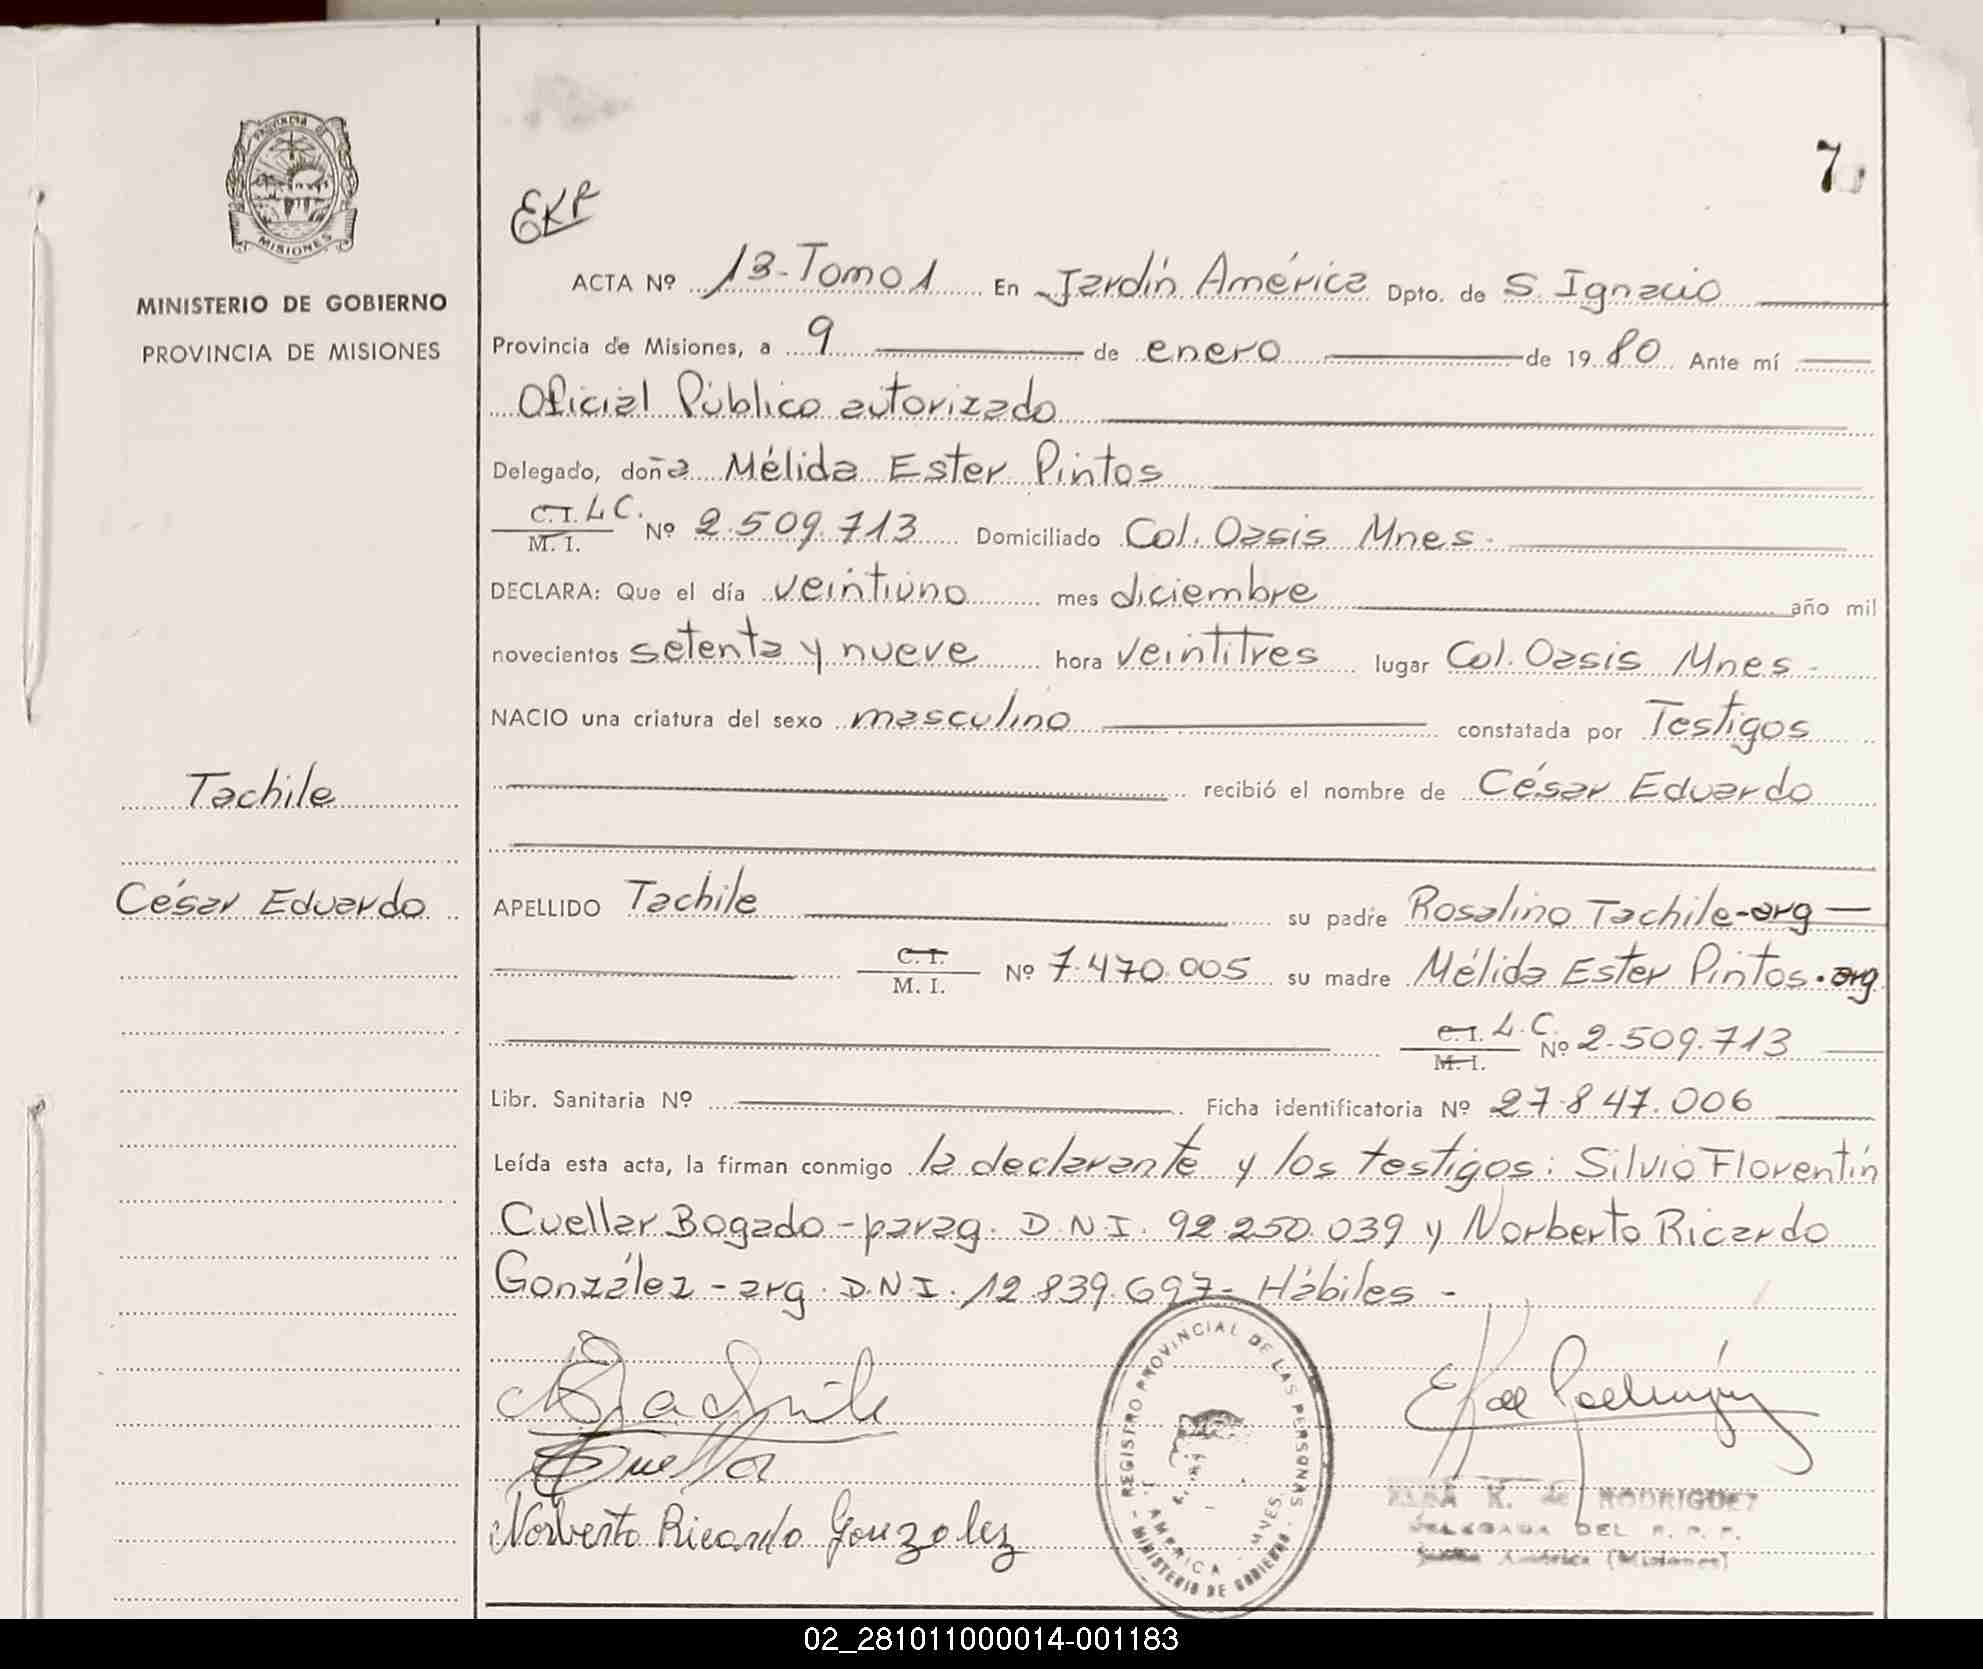 PROVINCIA DE
MISIONES
MINISTERIO DE GOBIERNO
PROVINCIA DE MISIONES
7
ACTA Nº 13-Tomo 1 En Jardín América Dpto. de S. Ignacio
Provincia de Misiones, a 9 de enero de 1980 Ante mí
Oficial Público autorizado
Delegado, doña Mélida Ester Pintos
C.I. L C. M. I. Nº 2.509.713 Domiciliado Col. Oasis Mnes.
DECLARA: Que el día veintiuno mes diciembre año mil
novecientos setenta y nueve hora veintitres lugar Col. Oasis Mnes.
NACIO una criatura del sexo masculino constatada por Testigos
Tachile
recibió el nombre de César Eduardo
César Eduardo
APELLIDO Tachile su padre Rosalino Tachile-arg
C.I. M. I. Nº 7.470.005 su madre Mélida Ester Pintos.arg
C.I. L.C. M.I. Nº 2.509.713
Libr. Sanitaria Nº Ficha identificatoria Nº 27.847.006
Leída esta acta, la firman conmigo la declarante y los testigos: Silvio Florentín
Cuellar Bogado-parag. D.N.I. 92.250.039 y Norberto Ricardo
González-arg. D.N.I. 12.839.697- Hábiles -
Norberto Ricardo Gonzalez
REGISTRO PROVINCIAL DE LAS PERSONAS
AMERICA - MNES
MINISTERIO DE GOBIERNO
K. de RODRIGUEZ
DELEGADA DEL R. P. P.
América (Misiones)
02_281011000014-001183